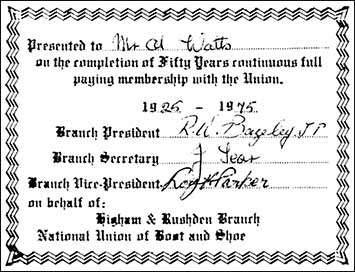 Presented to Mr A Watts
on the completion of Fifty Years continuous full
paying membership with the Union.
1925 - 1975
Branch President R. W. Bazeley. J P
Branch Secretary J Tear
Branch Vice-President Roy H Parker
on behalf of:
Higham & Rushden Branch
National Union of Boot and Shoe